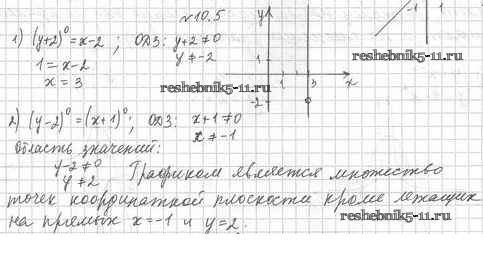 №10.5
1) (y+2)⁰ = x-2 ; ОДЗ: y+2≠0
y≠-2
1=x-2
x=3
y
1
3
x
-2
-1
1
reshebnik5-11.ru
reshebnik5-11.ru
2) (y-2)⁰=(x+1)⁰; ОДЗ: x+1≠0
x≠-1
Область значений:
y-2≠0
y≠2. Графиком является множество
точек координатной плоскости кроме лежащих
на прямых x=-1 и y=2.
reshebnik5-11.ru